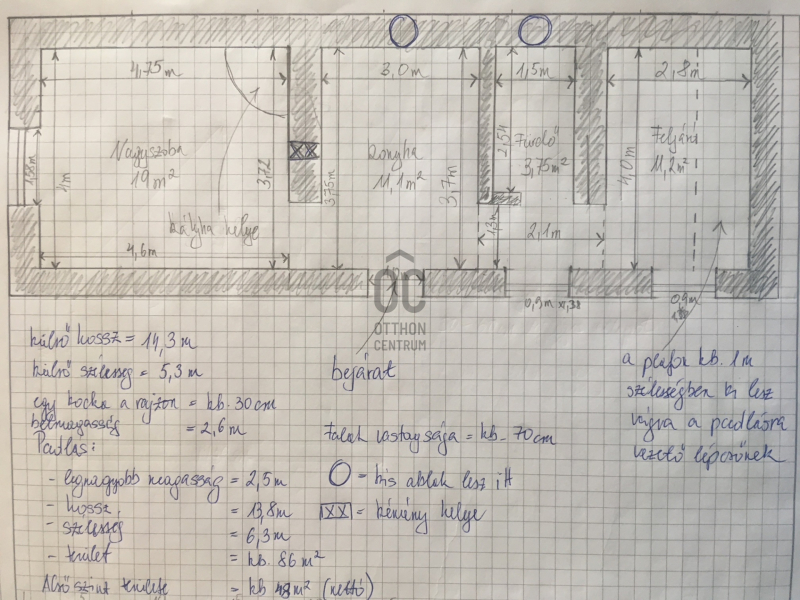 4,75m
3,0m
1,5m
2,8m
Nagyszoba
19m²
1,58m
4m
3,72
3,75m
konyha
11,1m²
3,7m
2,54
Fürdő
3,75m²
4,0m
Feljáró
11,2m²
kályha helye
4,6m
1,2m
2,1m
0,9m
OTTHON
CENTRUM
bejárat
külső hossz = 14,3m
külső szélesség = 5,3m
egy kocka a rajzon = kb. 30cm
belmagasság = 2,6m
Padlás:
- legnagyobb magasság = 2,5m
- hossz = 13,8m
- szélesség = 6,3m
- terület = kb. 86m²
Alsó szint területe = kb 48m² (nettó)
Falak vastagsága = kb. 70cm
O = kis ablak lesz itt
XX = kémény helye
a plafon kb. 1m
szélességben ki lesz
vágva a padlásra
vezető lépcsőnek